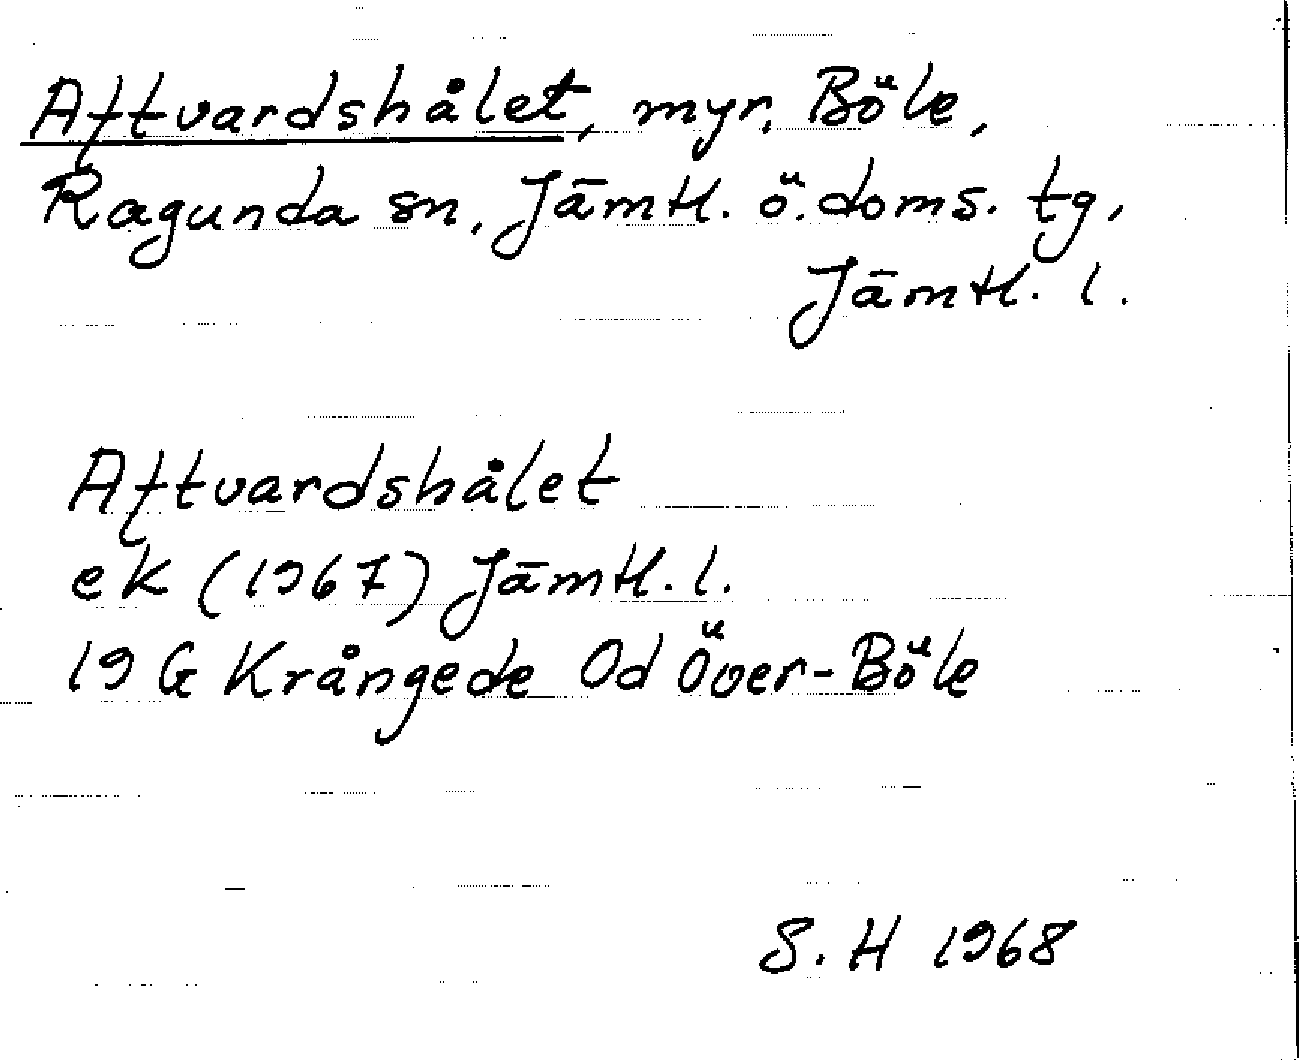 Aftvardshålet, myr, Böle,
Ragunda sn, Jämtl. ö. doms. tg,
Jämtl. l.
Aftvardshålet
ek (1967) Jämtl. l.
19 G Krångede Od Över-Böle
S. H 1968